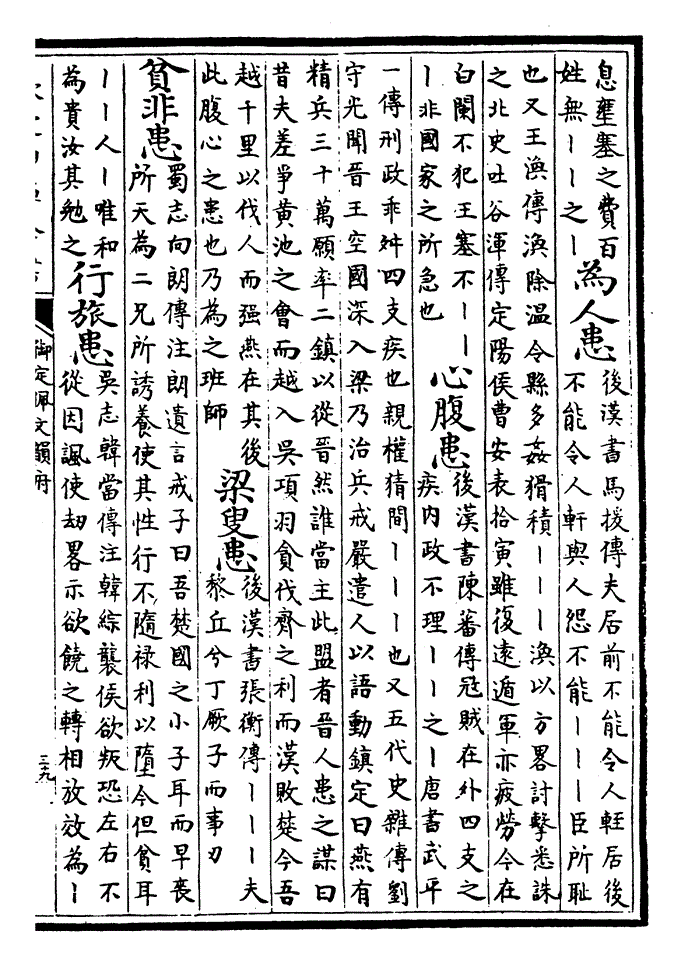 息壅塞之費百
姓無丨丨之丨
為人患
後漢書馬援傳夫居前不能令人輊居後
不能令人軒與人怨不能丨丨丨臣所耻
也又王渙傳渙除温令縣多姦猾積丨丨丨渙以方畧討擊悉誅
之北史吐谷渾傳定陽侯曹安表拾寅雖復遠遁軍亦疲勞今在
白闌不犯王塞不丨丨
丨非國家之所急也
心腹患
後漢書陳蕃傳冦賊在外四支之
疾内政不理丨丨之丨唐書武平
一傳刑政乖舛四支疾也親權猜間丨丨丨也又五代史雜傳劉
守光聞晉王空國深入梁乃治兵戒嚴遣人以語動鎮定曰燕有
精兵三十萬願率二鎮以從晉然誰當主此盟者晉人患之謀曰
昔夫差爭黄池之會而越入吳項羽貪伐齊之利而漢敗楚今吾
越千里以伐人而强燕在其後
此腹心之患也乃為之班師
梁叟患
後漢書張衡傳丨丨丨夫
黎丘兮丁厥子而事刃
貧非患
蜀志向朗傳注朗遺言戒子曰吾楚國之小子耳而早喪
所天為二兄所誘養使其性行不隨禄利以墮今但貧耳
丨丨人丨唯和
為貴汝其勉之
行旅患
吳志韓當傳注韓綜襲侯欲叛恐左右不
從因諷使刼畧示欲饒之轉相放效為丨
御定佩文韻府
三九